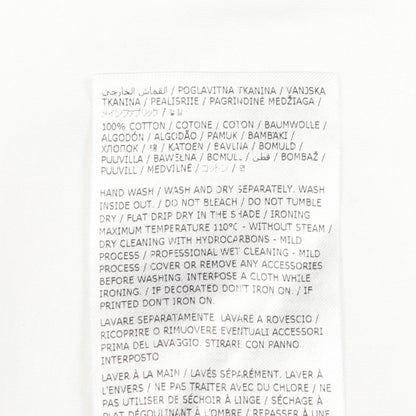 القماش الخارجي / POGLAVITNA TKANINA / VANJSKA
TKANINA / PEALISRIIE / PAGRINDINĖ MEDŽIAGA /
メインファブリック /
100% COTTON / COTONE / COTON / BAUMWOLLE /
ALGODÓN / ALGODÃO / PAMUK / BAMBAKI /
ХЛОПОК / 棉 / KATOEN / BAVLNA / BOMULD /
PUUVILLA / BAWEŁNA / BOMULL / قطن / BOMBAŽ /
PUUVILL / MEDVILNĖ / コットン / 면
HAND WASH / WASH AND DRY SEPARATELY. WASH
INSIDE OUT. / DO NOT BLEACH / DO NOT TUMBLE
DRY / FLAT DRIP DRY IN THE SHADE / IRONING
MAXIMUM TEMPERATURE 110°C - WITHOUT STEAM /
DRY CLEANING WITH HYDROCARBONS - MILD
PROCESS / PROFESSIONAL WET CLEANING - MILD
PROCESS / COVER OR REMOVE ANY ACCESSORIES
BEFORE WASHING. INTERPOSE A CLOTH WHILE
IRONING. / IF DECORATED DON'T IRON ON. / IF
PRINTED DON'T IRON ON.
LAVARE SEPARATAMENTE. LAVARE A ROVESCIO /
RICOPRIRE O RIMUOVERE EVENTUALI ACCESSORI
PRIMA DEL LAVAGGIO. STIRARE CON PANNO
INTERPOSTO
LAVER À LA MAIN / LAVÉS SÉPARÉMENT. LAVER À
L'ENVERS / NE PAS TRAITER AVEC DU CHLORE / NE
PAS UTILISER DE SÉCHOIR À LINGE / SÉCHAGE À
PLAT DÉGOULINANT À L'OMBRE / REPASSER À UNE